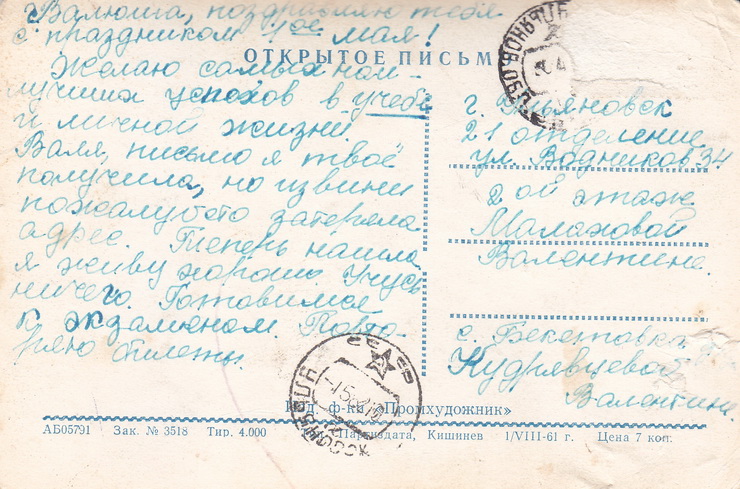 Валюша, поздравляю тебя
с праздником 1ое мая!
ОТКРЫТОЕ ПИСЬМ
Желаю самых наи-
лучших успехов в учебе
и личной жизни.
Валя, письмо я твоё
получила, но извини
пожалуста затеряла
адрес. Теперь нашла.
я живу хорошо. Учусь
ничего. Готовимся
к экзаменам. Повто-
ряю билеты.
г. Ульяновск
21 отделение
ул. Водников 34
2ой этаж
Малаховой
Валентине.
с. Бекетовка
Кудрявцевой
Валентины.
Изд. ф-ки «Промхудожник»
АБ05791 Зак. № 3518 Тир. 4.000 Партиздата, Кишинев 1/VIII-61 г. Цена 7 коп.